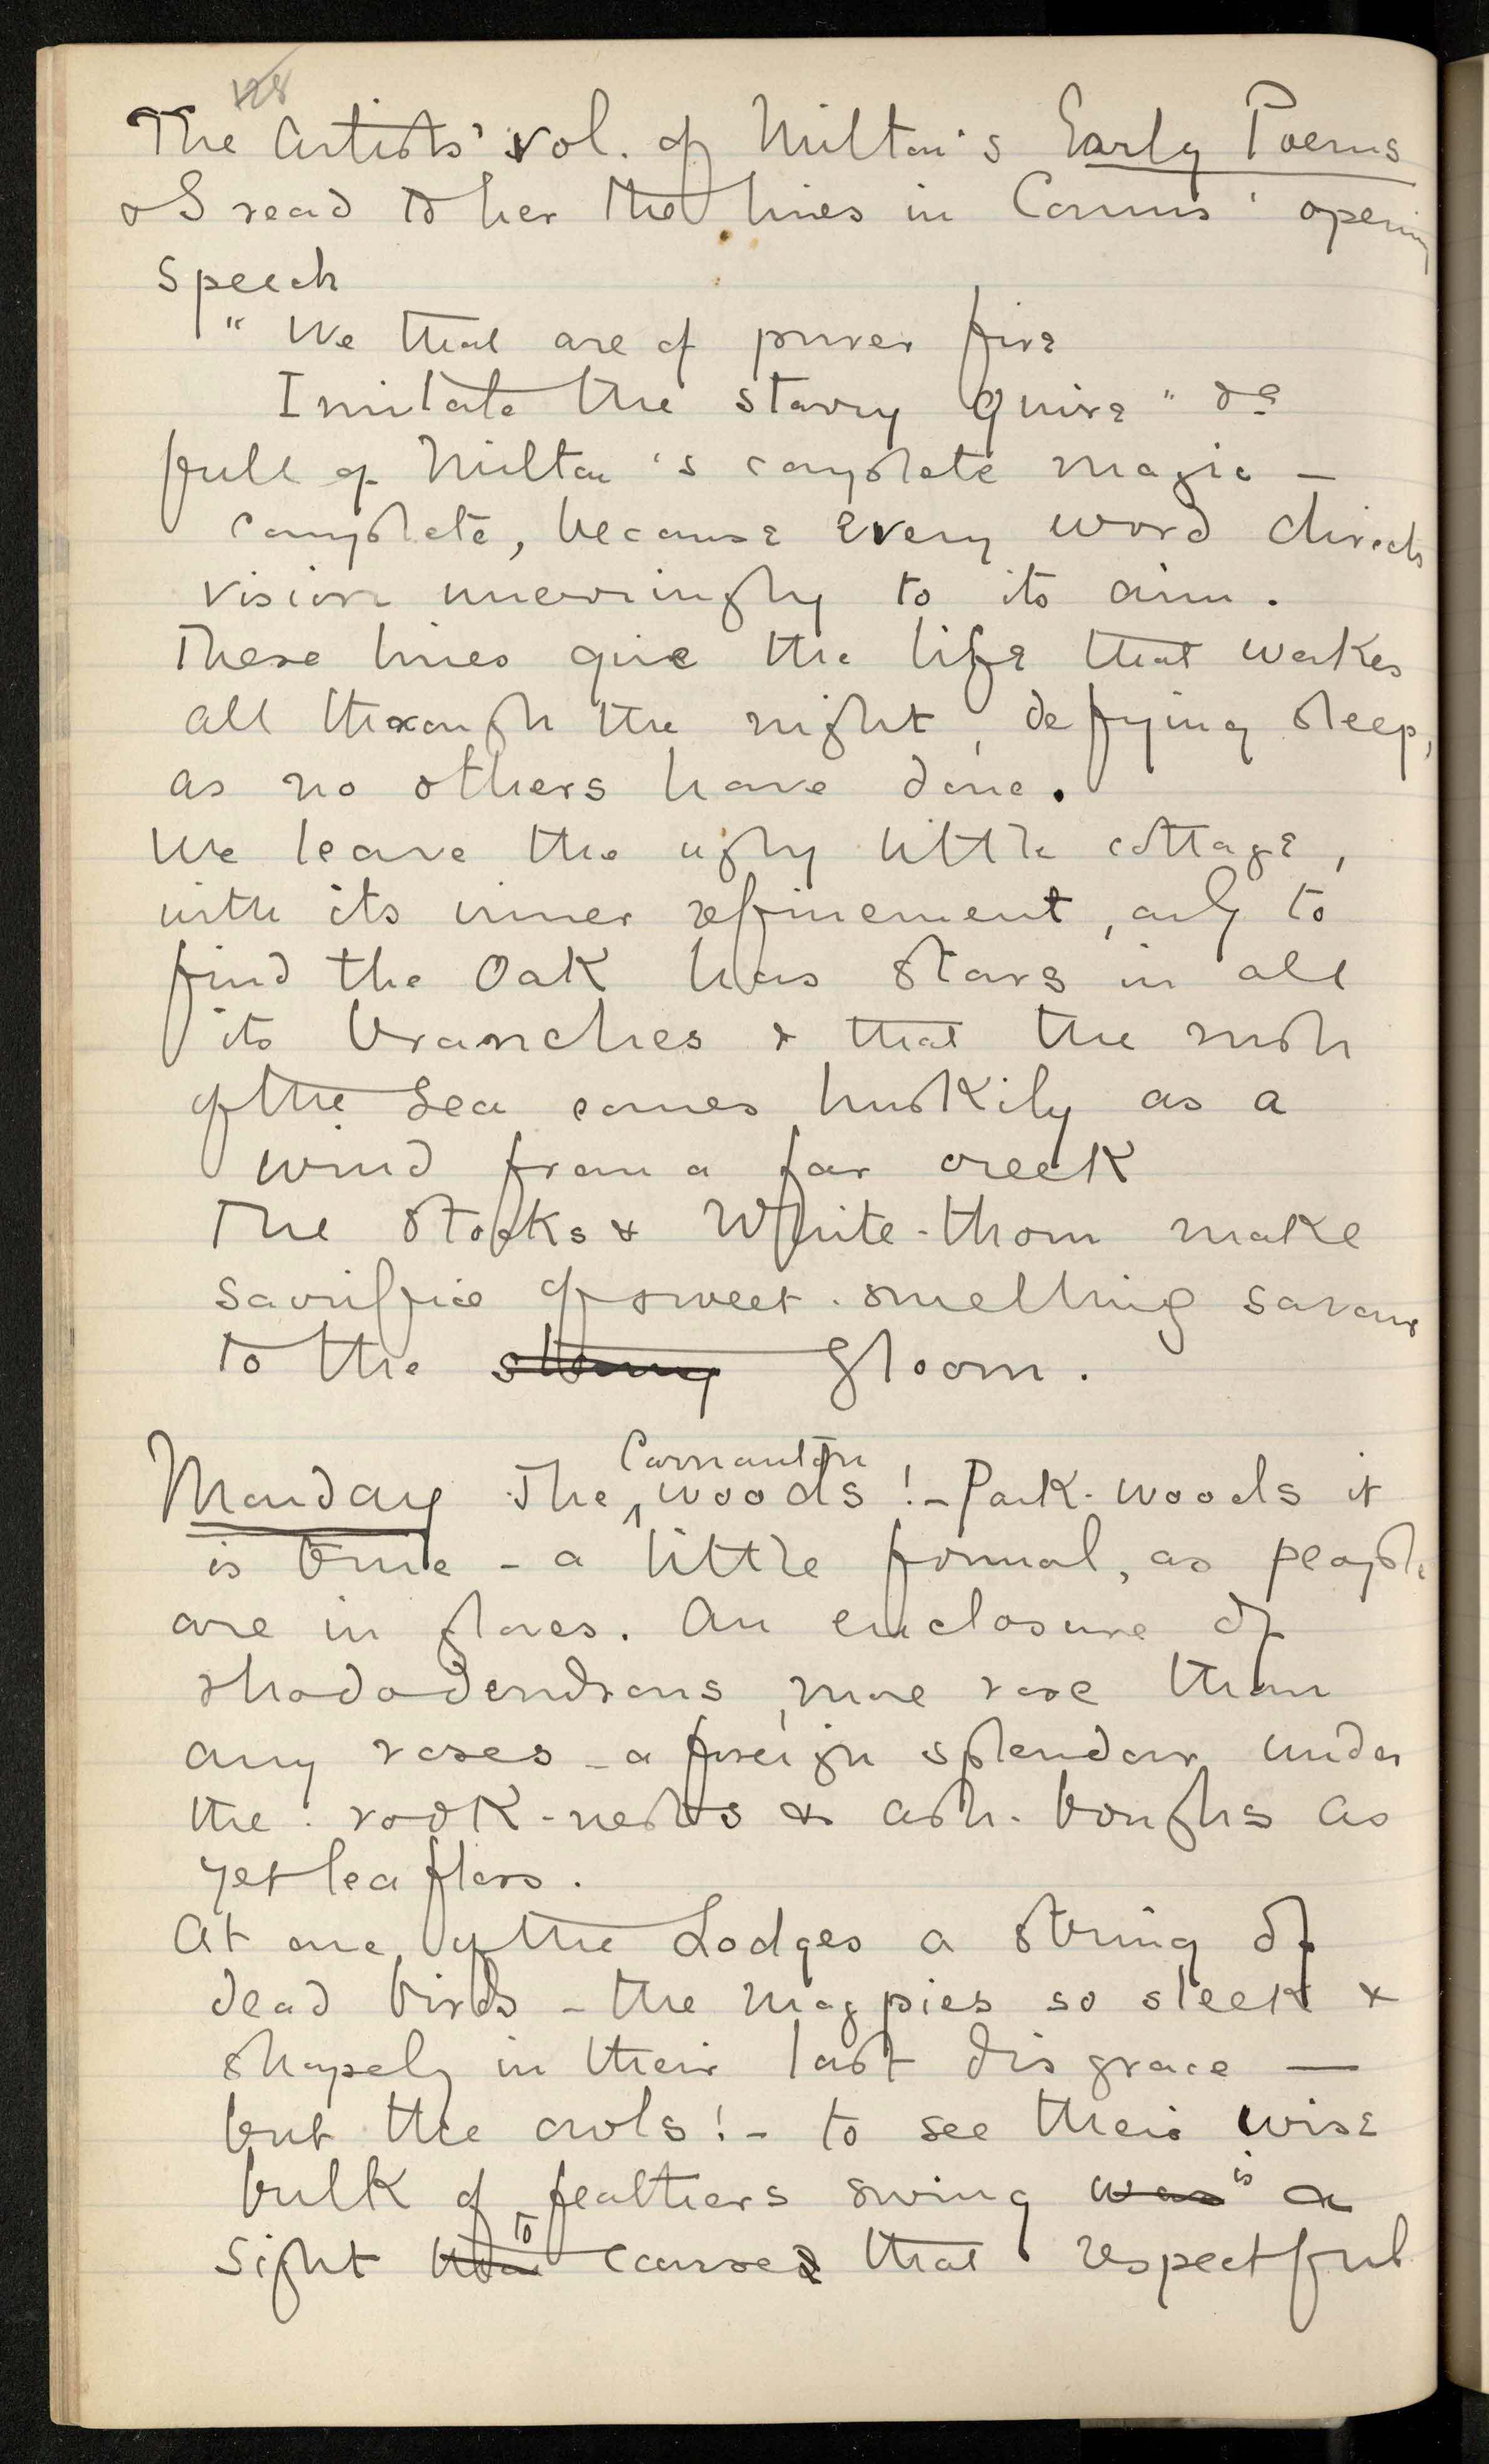 128
The Artists' vol. of Milton's Early Poems
& I read to her the lines in Comus' opening
speech
" We that are of purer fire
Imitate the starry quire " &c
full of Milton's complete magic —
complete, because every word directs
vision unerringly to its aim.
These lines give the life that wakes
all through the night, defying sleep,
as no others have done.
We leave the ugly little cottage,
with its inner refinement, only to
find the Oak has stars in all
its branches & that the rush
of the Sea comes huskily as a
wind from a far creek
The Stocks & White-thorn make
sacrifice of sweet-smelling savour
to the starry gloom.
Carnanton
Monday The woods! - Park-woods it
is true - a little formal, as people
are in gloves. An enclosure of
rhododendrons, more rose than
any roses - a foreign splendour under
the rook-nests & ash-boughs as
yet leafless.
At one of the Lodges a string of
dead birds - the magpies so sleek &
shapely in their last disgrace —
but the owls! - to see their wise
bulk of feathers swing was is a
sight to caused that respectful